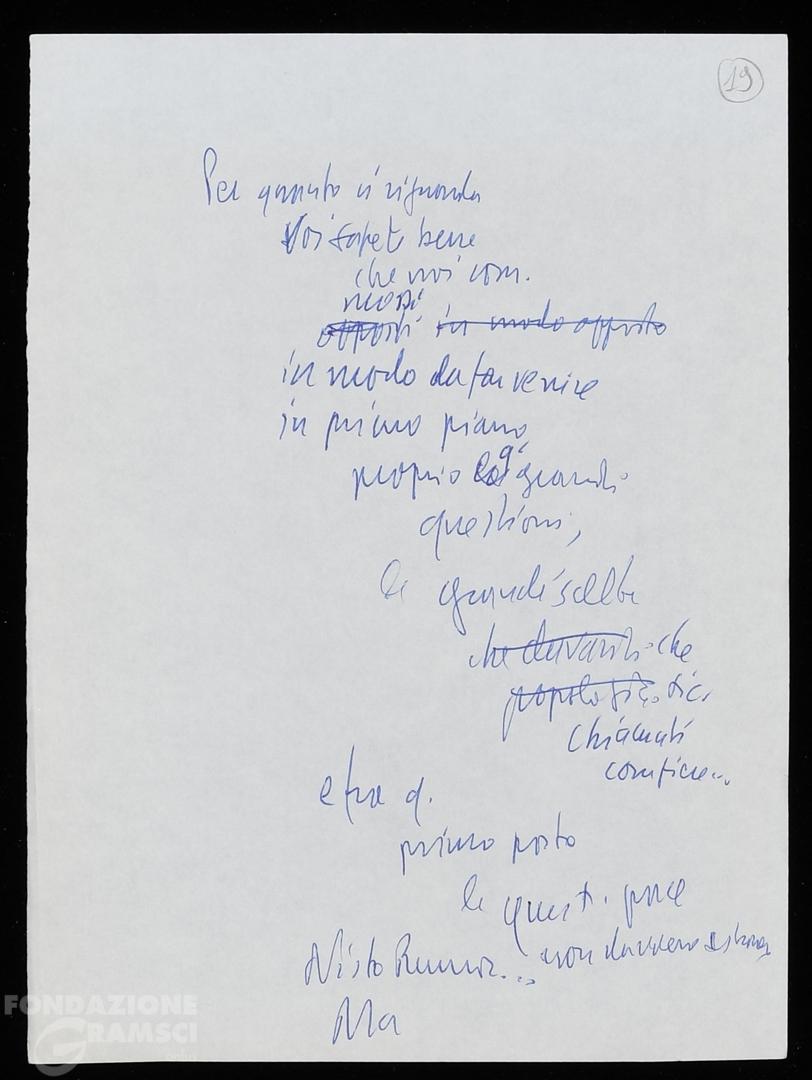 19
Per quanto ci riguarda
Voi sapete bene
che noi com.
mossi
opposti in modo opposto
in modo da far venire
in primo piano
proprio q. grandi
questioni,
le grandi scelte
che davanti che
popolo si è.
chiamati
compiere...
e fra q.
primo posto
le quest. pace
Visto Rumor... non davvero
Ma
FONDAZIONE
GRAMSCI